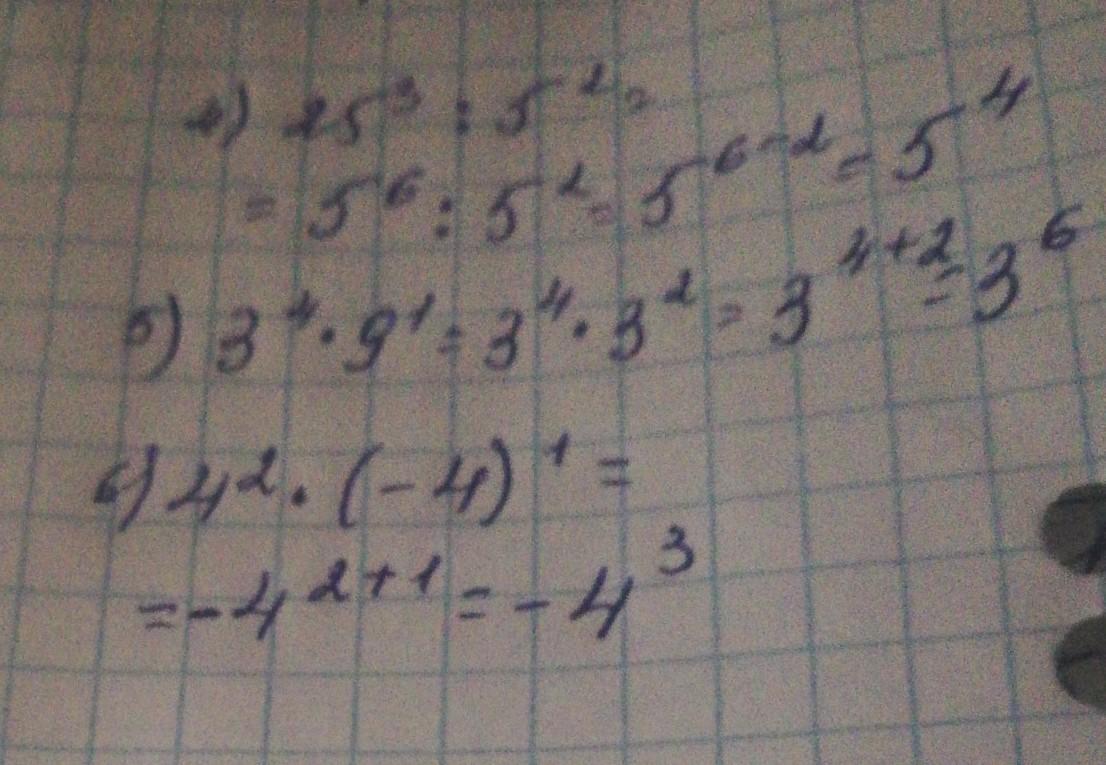 4) 25³ : 5² =
= 5⁶ : 5² = 5⁶⁻² = 5⁴
5) 3⁴ · 9¹ = 3⁴ · 3² = 3⁴⁺² = 3⁶
6) 4² · (-4)¹ =
= -4²⁺¹ = -4³